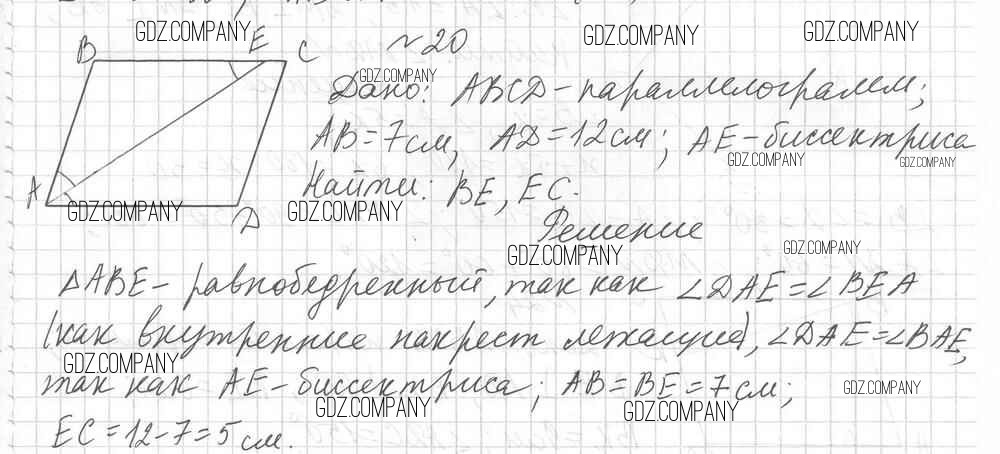 GDZ.COMPANY GDZ.COMPANY GDZ.COMPANY
B E C
№20
GDZ.COMPANY
Дано: ABCD - параллелограмм;
AB = 7 см, AD = 12 см; AE - биссектриса
GDZ.COMPANY GDZ.COMPANY
A D
Найти: BE, EC.
GDZ.COMPANY GDZ.COMPANY
Решение
GDZ.COMPANY GDZ.COMPANY
△ABE - равнобедренный, так как ∠DAE = ∠BEA
(как внутренние накрест лежащие), ∠DAE = ∠BAE,
GDZ.COMPANY
так как AE - биссектриса; AB = BE = 7 см;
GDZ.COMPANY GDZ.COMPANY GDZ.COMPANY
EC = 12 - 7 = 5 см.